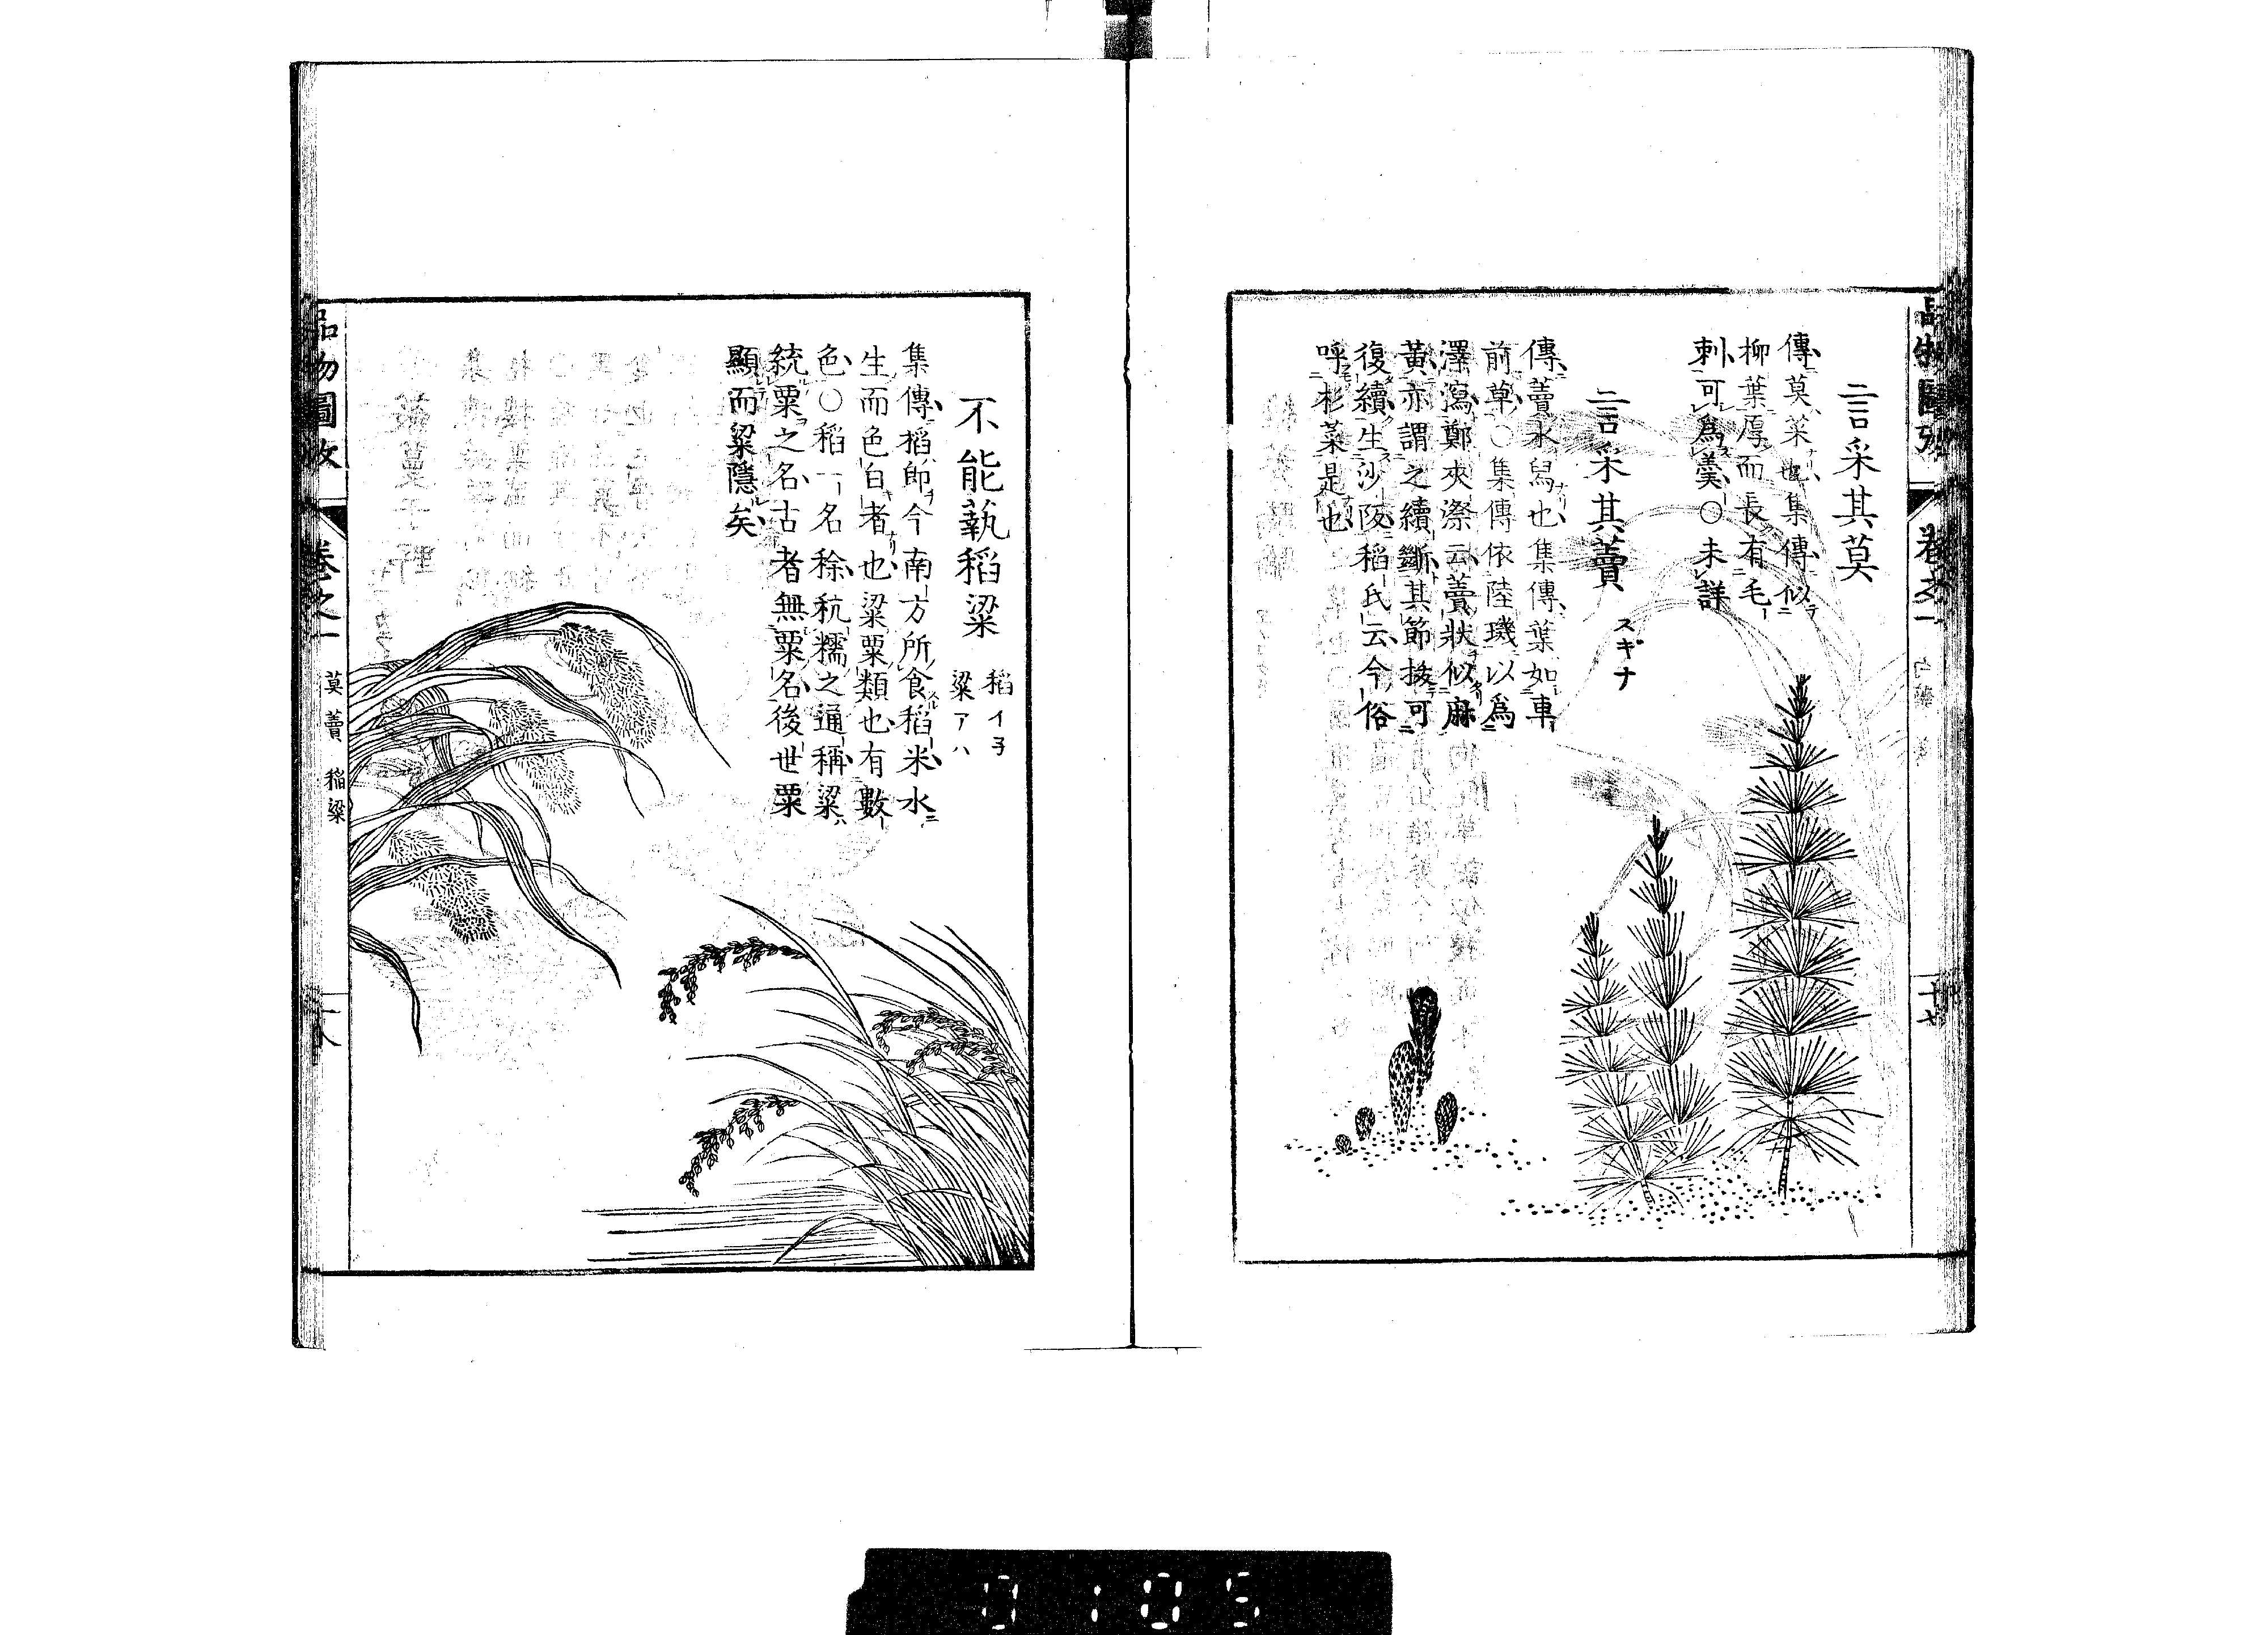 言采其莫
傳莫菜也集傳似
柳葉厚而長有毛
刺可爲羹○未詳
言采其藚 スギナ
傳藚水舄也集傳葉如車
前草○集傳依陸璣以爲
澤瀉鄭夾漈云藚狀似麻
黃亦謂之續斷其節拔可
復續生沙陂稻氏云今俗
呼杉菜是也
卷之一
十七
不能蓺稻粱
稻イ子
粱アハ
集傳稻即今南方所食稻米水
生而色白者也粱粟類也有數
色○稻一名稌秔糯之通稱粱
統粟之名古者無粟名後世粟
顯而粱隱矣
品物圖攷
卷之一
莫 藚 稲粱
十八
0105